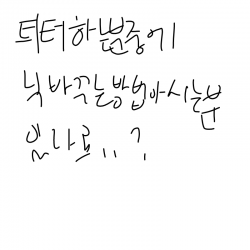 틔터하는분중에
닉바꾸는방법아시는분
있나요..?